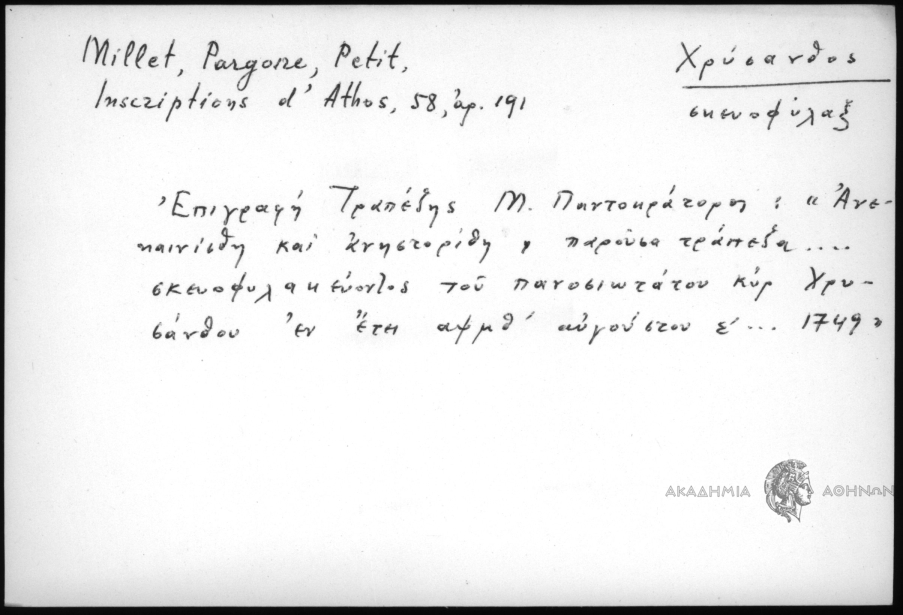 Millet, Pargoire, Petit,
Inscriptions d' Athos, 58, ἀρ. 191
Χρύσανθος
σκευοφύλαξ
Ἐπιγραφή Τραπέζης Μ. Παντοκράτορος : "Ἀνε-
καινίσθη καὶ ἀνηστορίθη ἡ παροῦσα τράπεζα ....
σκευοφυλακεύοντος τοῦ πανοσιωτάτου κύρ Χρυ-
σάνθου ἐν ἔτει αψμθ΄ αὐγούστου ε΄... 1749"
ΑΚΑΔΗΜΙΑ ΑΘΗΝΩΝ